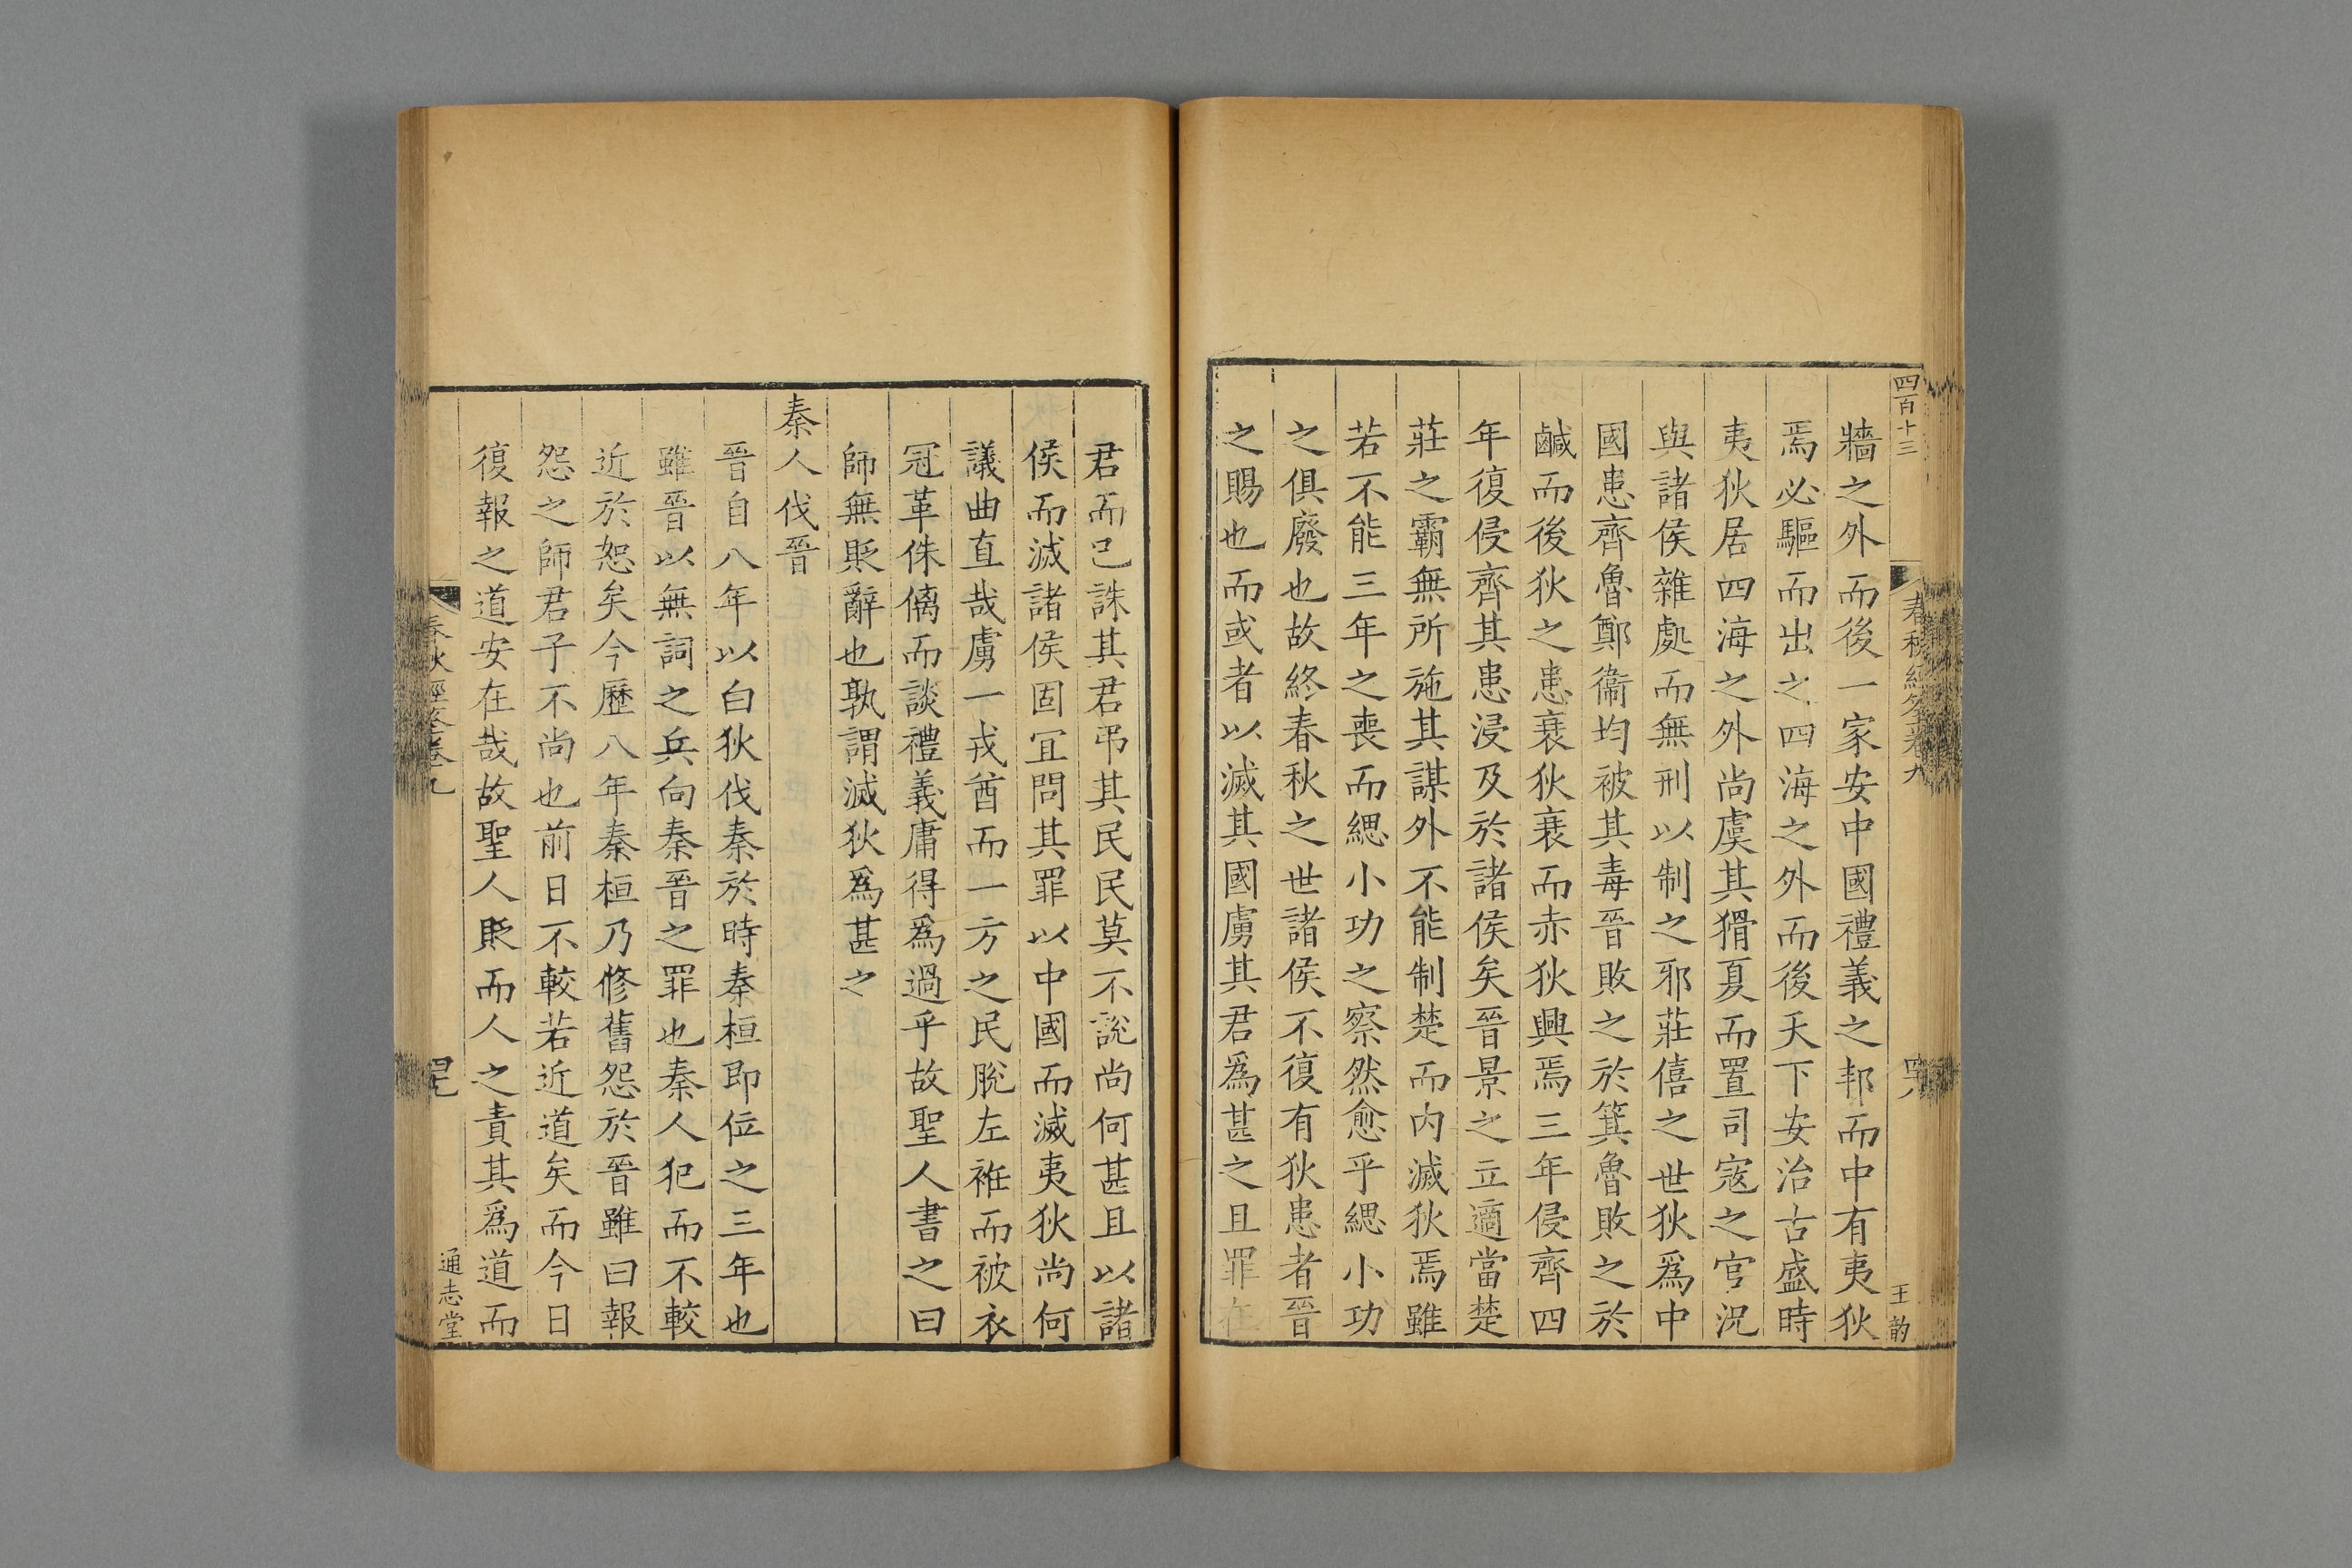 四百十三
春秋經筌卷九
四八
王韵
牆之外而後一家安中國禮義之邦而中有夷狄
焉必驅而出之四海之外而後天下安治古盛時
夷狄居四海之外尚虞其猾夏而置司寇之官況
與諸侯雜處而無刑以制之邪莊僖之世狄爲中
國患齊魯鄭衞均被其毒晉敗之於箕魯敗之於
鹹而後狄之患衰狄衰而赤狄興焉三年侵齊四
年復侵齊其患浸及於諸侯矣晉景之立適當楚
莊之霸無所施其謀外不能制楚而内滅狄焉雖
若不能三年之喪而緦小功之察然愈乎緦小功
之俱廢也故終春秋之世諸侯不復有狄患者晉
之賜也而或者以滅其國虜其君爲甚之且罪在
君而已誅其君弔其民民莫不說尚何甚且以諸
侯而滅諸侯固宜問其罪以中國而滅夷狄尚何
議曲直哉虜一戎酋而一方之民脫左袵而被衣
冠革侏儷而談禮義庸得爲過乎故聖人書之曰
師無貶辭也孰謂滅狄爲甚之
秦人伐晉
晉自八年以白狄伐秦於時秦桓即位之三年也
雖晉以無詞之兵向秦晉之罪也秦人犯而不較
近於恕矣今歷八年秦桓乃修舊怨於晉雖曰報
怨之師君子不尚也前日不較若近道矣而今日
復報之道安在哉故聖人貶而人之責其爲道而
春秋經筌卷九
通志堂